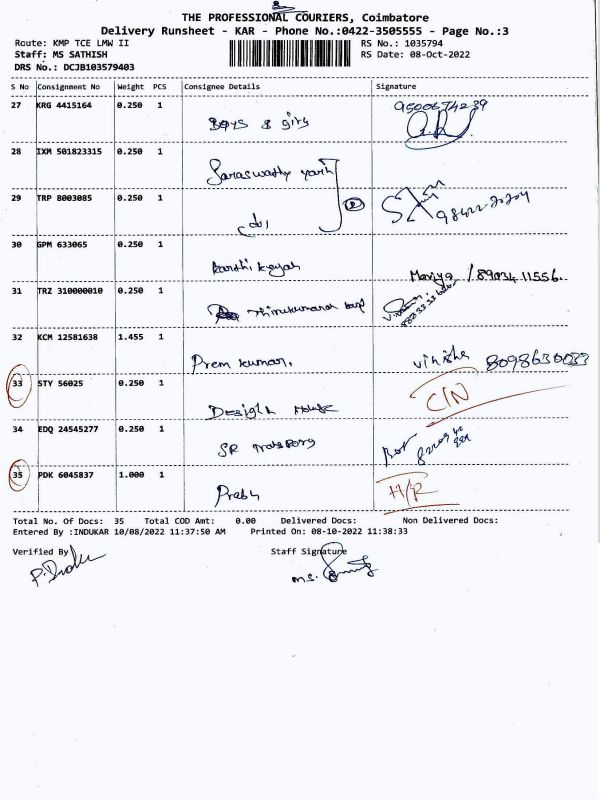 THE PROFESSIONAL COURIERS, Coimbatore
Delivery Runsheet - KAR - Phone No.:0422-3505555 - Page No.:3
Route: KMP TCE LMW II
RS No.: 1035794
Staff: MS SATHISH
RS Date: 08-Oct-2022
DRS No.: DCJB103579403
S No Consignment No Weight PCS Consignee Details Signature
27 KRG 4415164 0.250 1 Boys & girls 9500674239
28 IXM 501823315 0.250 1 Saraswathy
29 TRP 8003085 0.250 1 2
30 GPM 633065 0.250 1
/ 89034 11556.
31 TRZ 310000010 0.250 1
32 KCM 12581638 1.455 1 Prem kumar. 8098630033
33 STY 56025 0.250 1 C/N
34 EDQ 24545277 0.250 1 SR
35 PDK 6045837 1.000 1 Prabu H/R
Total No. Of Docs: 35 Total COD Amt: 0.00 Delivered Docs: Non Delivered Docs:
Entered By :INDUKAR 10/08/2022 11:37:50 AM Printed On: 08-10-2022 11:38:33
Verified By Staff Signature